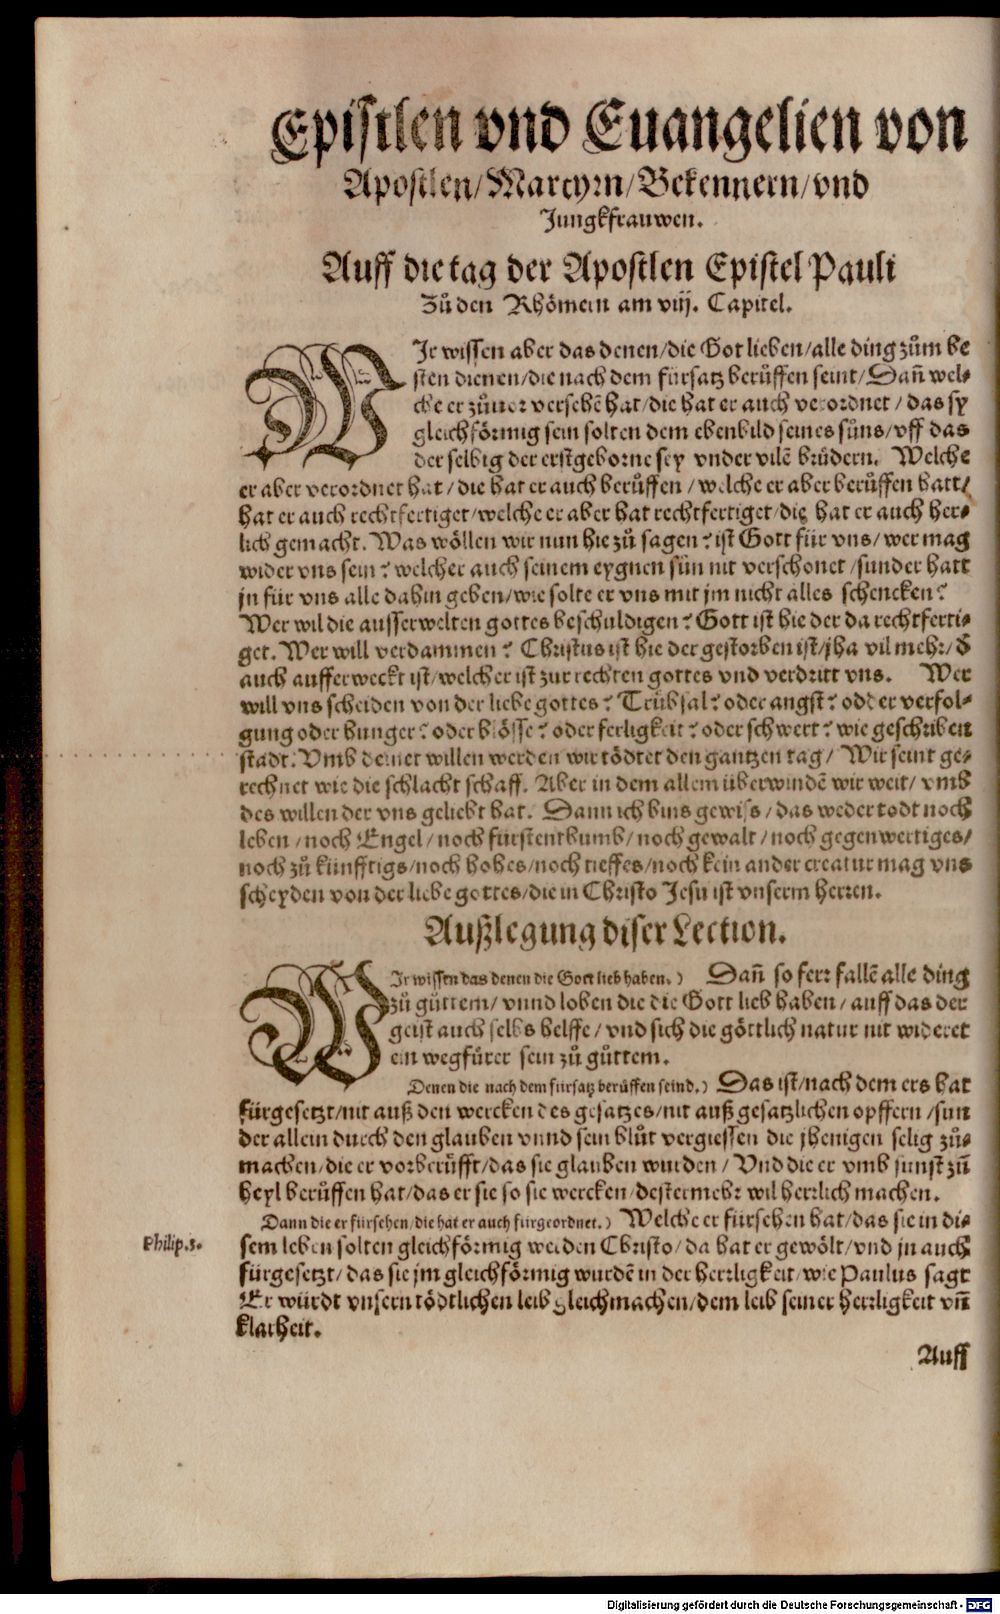 Epistlen vnd Euangelien von
Apostlen/Martyrn/Bekennern/vnd
Jungkfrauwen.
Auff die tag der Apostlen Epistel Pauli
Zů den Rhömern am viij. Capitel.
WIr wissen aber das denen/die Got lieben/alle ding zům be
sten dienen/die nach dem fürsatz berůffen seint/Dañ wel⸗
che er zůuor versehē hat/die hat er auch verordnet/das sy
gleichförmig sein solten dem ebenbild seines sůns/vff das
der selbig der erstgeborne sey vnder vilē brůdern. Welche
er aber verordnet hat/die hat er auch berůffen/welche er aber berůffen hatt/
hat er auch rechtfertiget/welche er aber hat rechtfertiget/die hat er auch her⸗
lich gemacht. Was wöllen wir nun hie zů sagen? ist Gott für vns/wer mag
wider vns sein? welcher auch seinem eygnen sůn nit verschonet/sunder hatt
jn für vns alle dahin geben/wie solte er vns mit jm nicht alles schencken?
Wer wil die ausserwelten gottes beschuldigen? Gott ist hie der da rechtferti⸗
get. Wer will verdammen? Christus ist hie der gestorben ist/jha vil mehr/d̄
auch aufferweckt ist/welcher ist zur rechten gottes vnd verdritt vns. Wer
will vns scheiden von der liebe gottes? Trübsal? oder angst? oder verfol⸗
gung oder hunger? oder blösse? oder ferligkeit? oder schwert? wie geschriben
stadt. Vmb deinet willen werden wir tödtet den gantzen tag/Wir seint ge⸗
rechnet wie die schlacht schaff. Aber in dem allem überwindē wir weit/vmb
des willen der vns geliebt hat. Dann ich bins gewiss/das weder todt noch
leben/noch Engel/noch fürstenthumb/noch gewalt/noch gegenwertiges/
noch zů künfftigs/noch hohes/noch tieffes/noch kein ander creatur mag vns
scheyden von der liebe gottes/die in Christo Jesu ist vnserm herren.
Außlegung diser Lection.
WIr wissen das denen die Gott lieb haben.) Dañ so ferr fallē alle ding
zů gůttem/vnnd loben die die Gott lieb haben/auff das der
geist auch selbs helffe/vnd sich die göttlich natur nit wideret
ein wegfürer sein zů gůttem.
Denen die nach dem fürsatz berůffen seind.) Das ist/nach dem ers hat
fürgesetzt/nit auß den wercken des gesatzes/nit auß gesatzlichen opffern/sun
der allein durch den glauben vnnd sein blůt vergiessen die jhenigen selig zů⸗
machen/die er vorberůfft/das sie glauben wurden/Vnd die er vmb sunst zů
heyl berůffen hat/das er sie so sie wercken/destermehr wil herrlich machen.
Dann die er fürsehen/die hat er auch fürgeordnet.) Welche er fürsehen hat/das sie in di⸗
Philip.3.
sem leben solten gleichförmig werden Christo/da hat er gewölt/vnd jn auch
fürgesetzt/das sie jm gleichförmig wurdē in der herrligkeit/wie Paulus sagt
Er würdt vnsern tödtlichen leib gleichmachen/dem leib seiner herrligkeit vñ
klarheit.
Auff
Digitalisierung gefördert durch die Deutsche Forschungsgemeinschaft - DFG